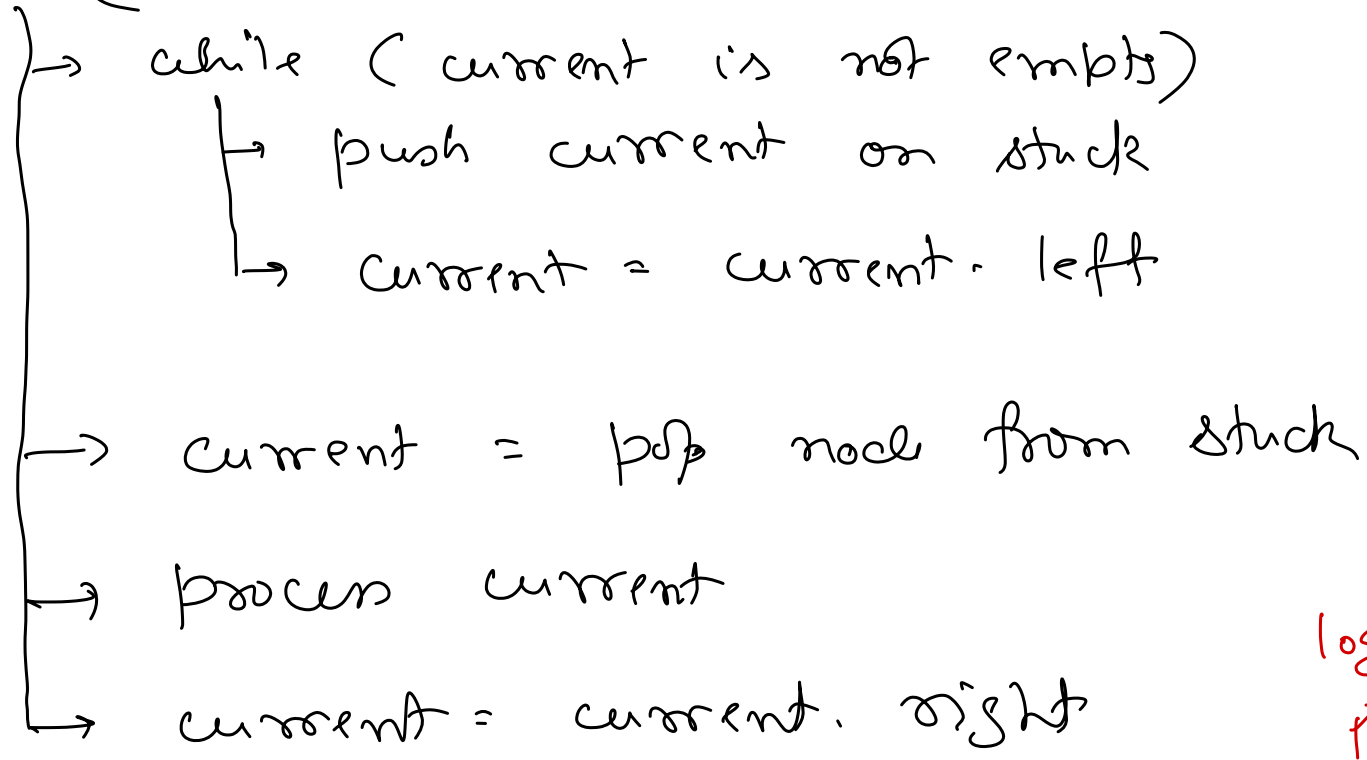 while (current is not empty)
push current on stack
current = current. left
current = pop node from stack
process current
current = current. right